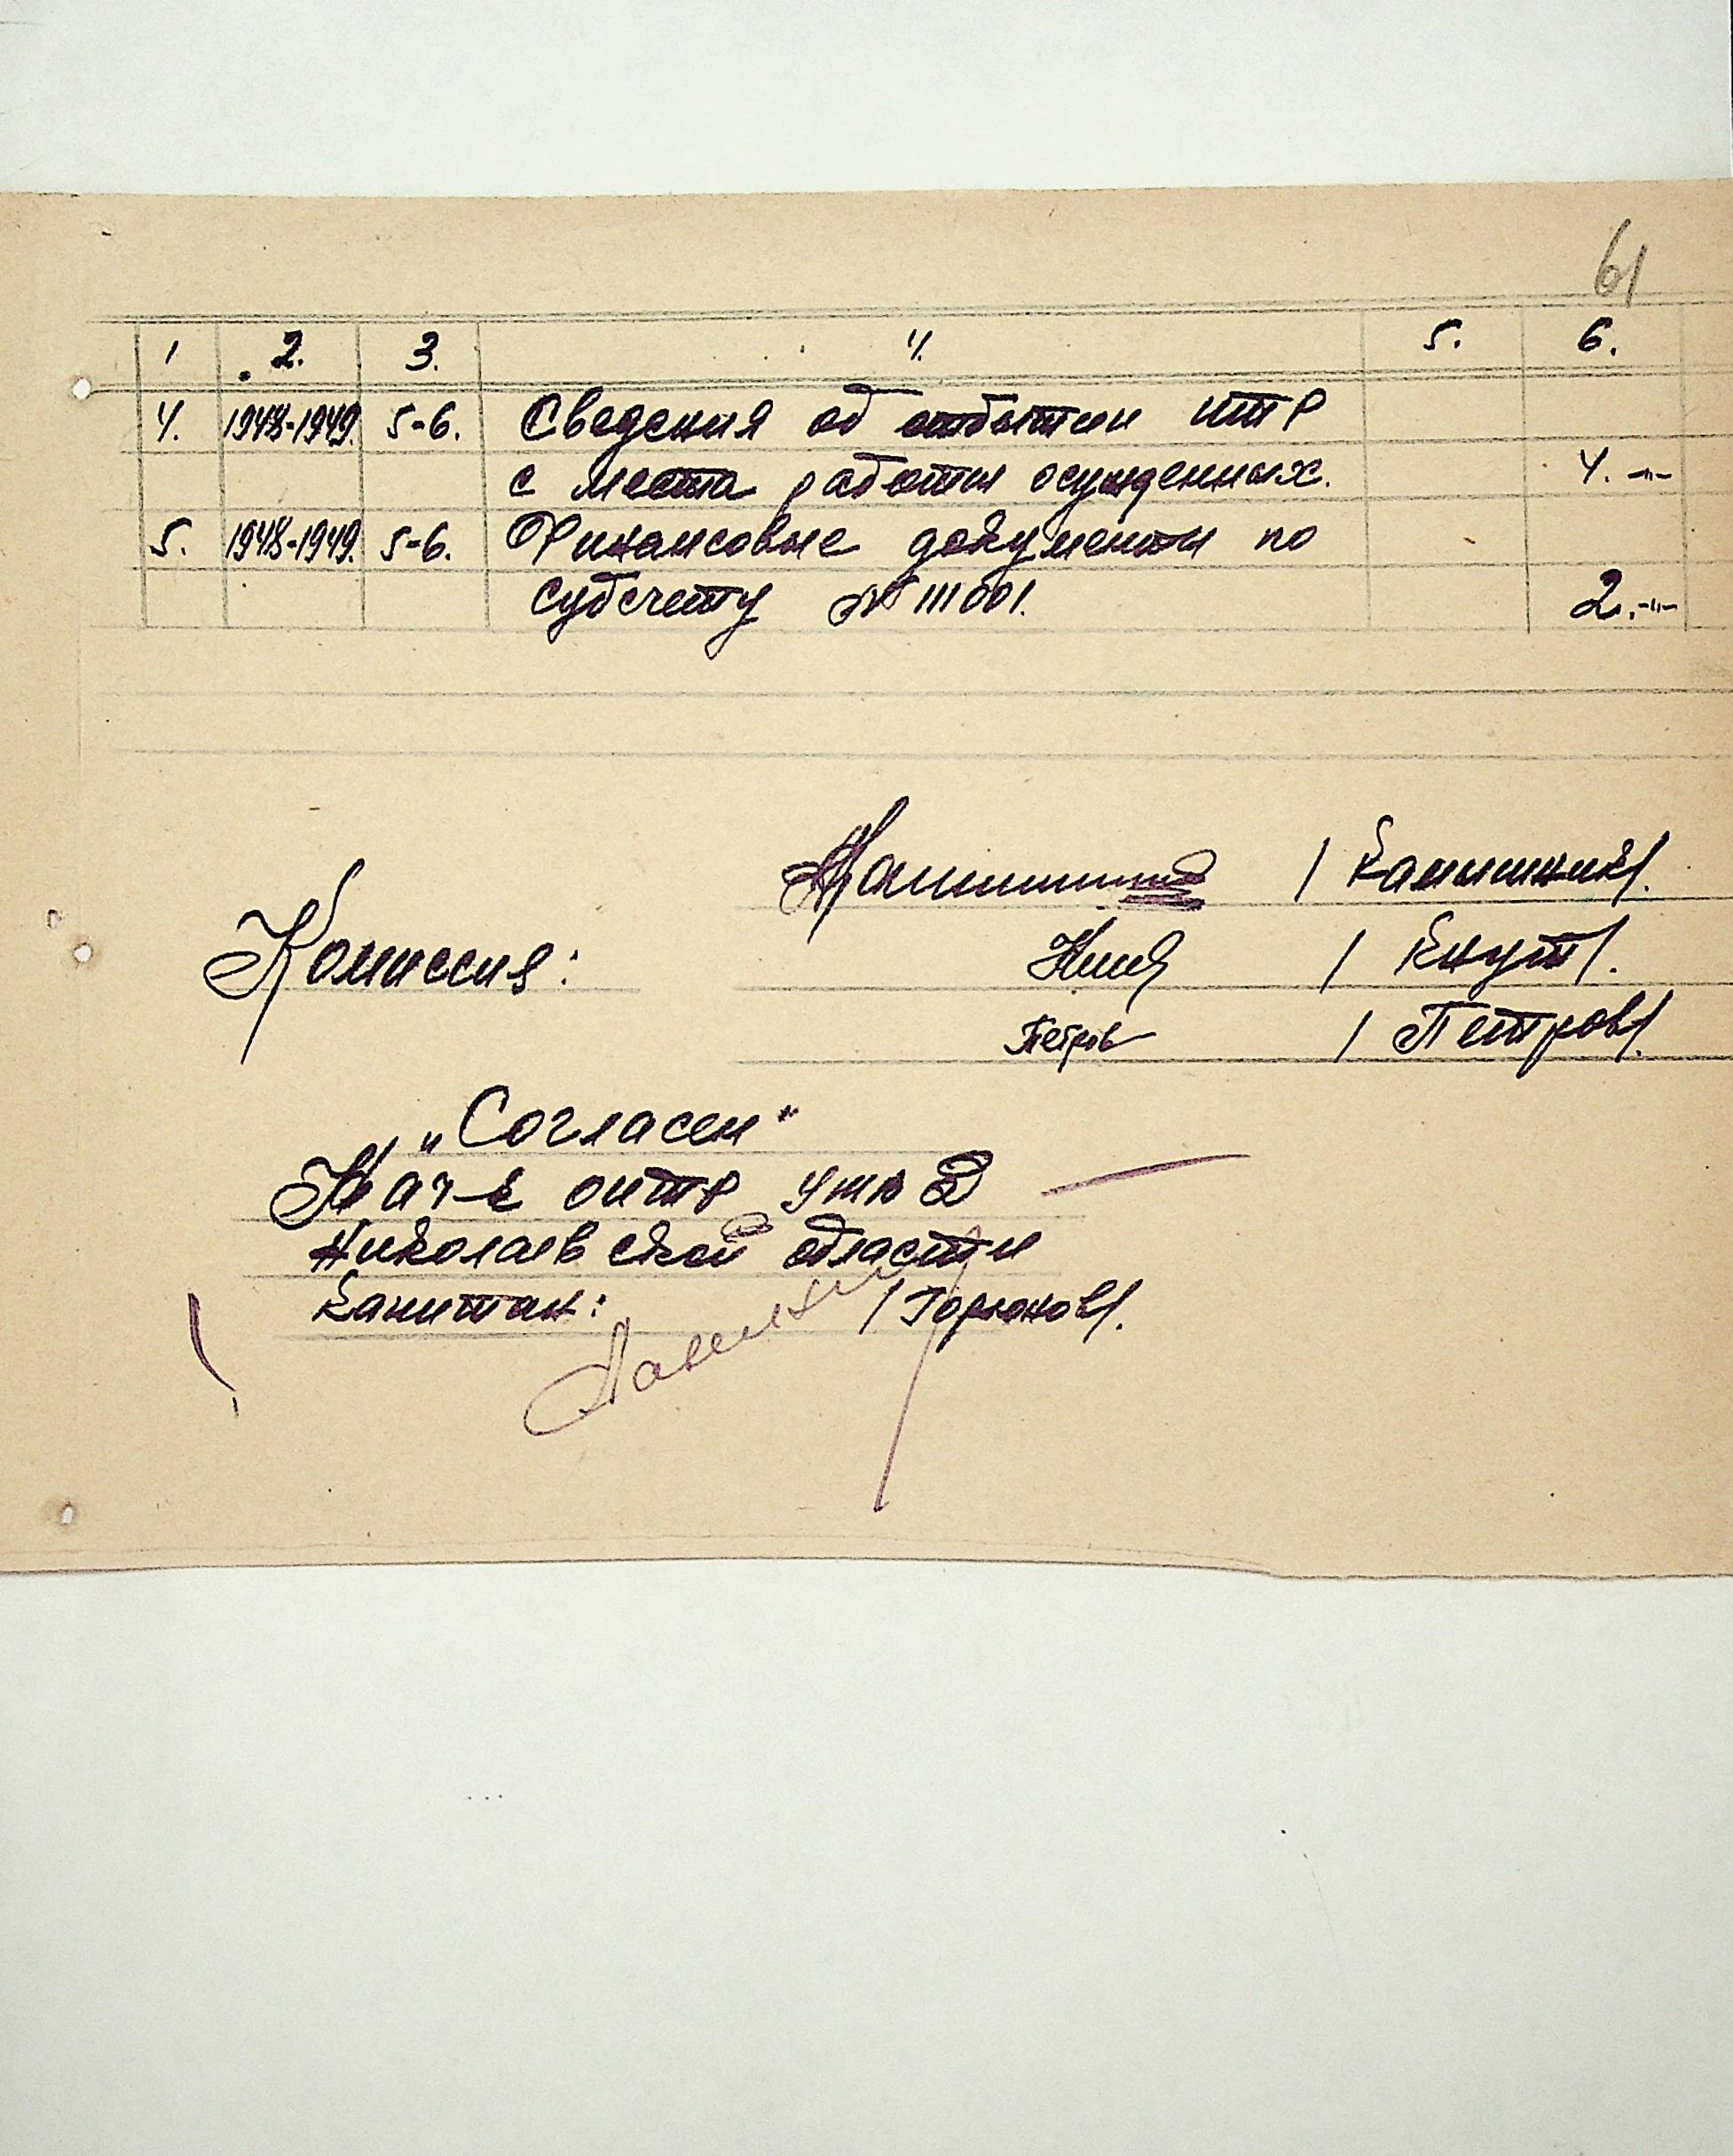 61
1 2. 3. 4. 5. 6.
4. 1948-1949. 5-6. Сведения об отбытии ИТР
с места работы осужденных. 4. -"-
5. 1948-1949. 5-6. Финансовые документы по
субсчету № 111001. 2. -"-
/Камышник/.
Комиссия: /Кнут/.
Петров /Петров/.
„Согласен"
Нач-к ОИТР УМВД
Николаевской области
Капитан: /Горюнов/.